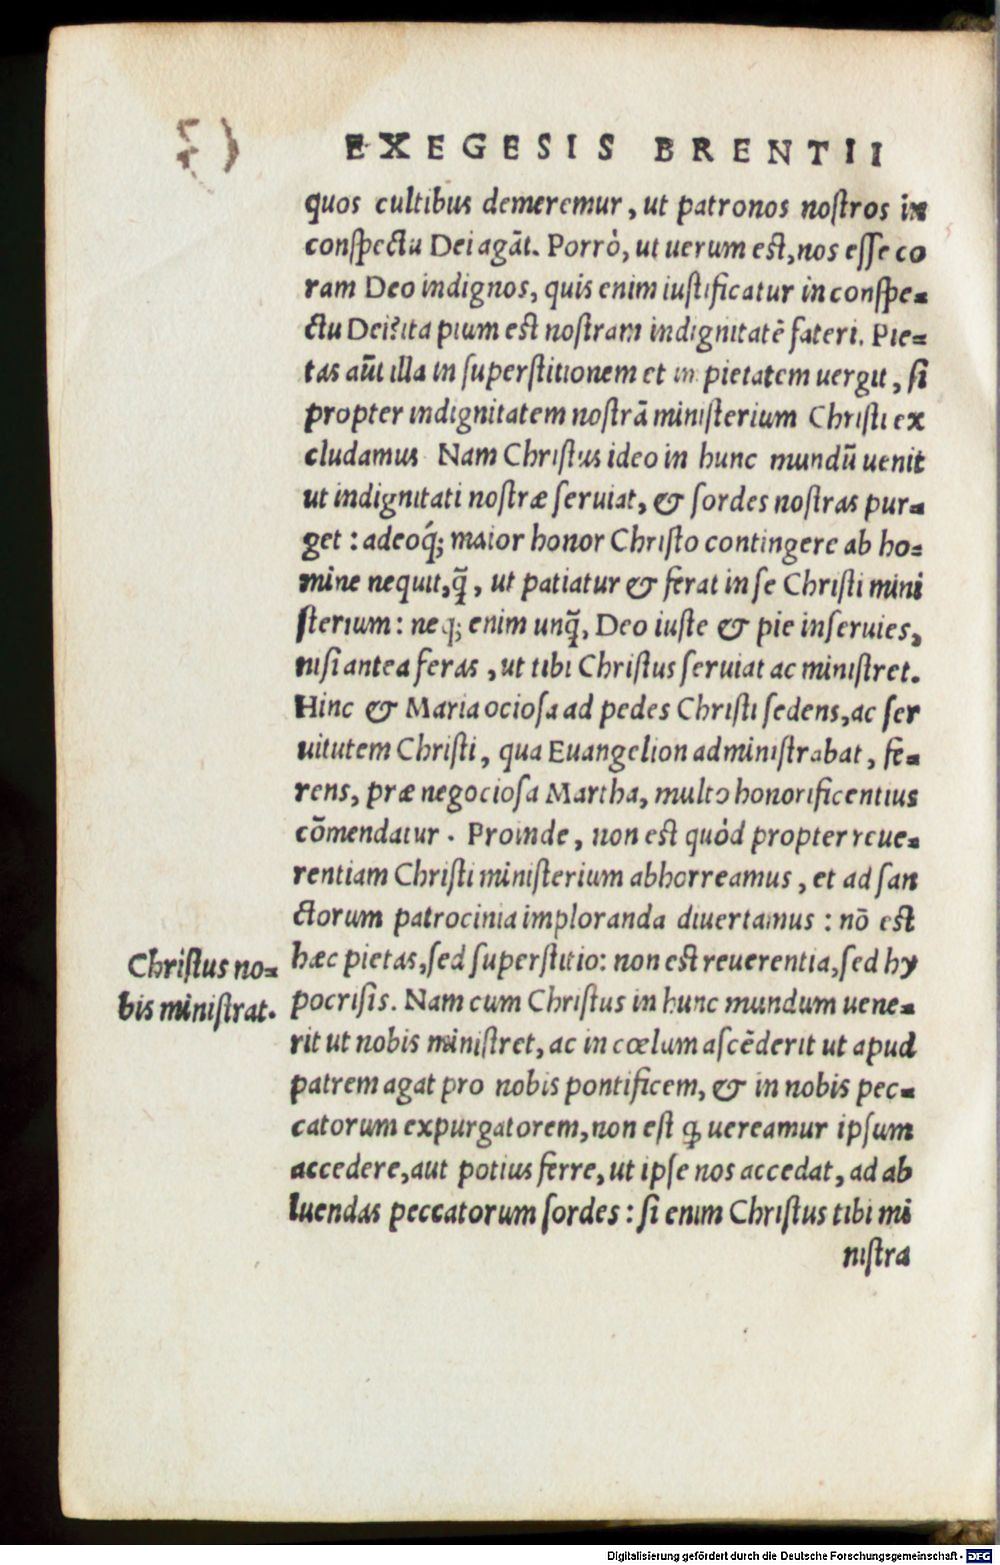 EXEGESIS BRENTII
quos cultibus demeremur, ut patronos noſtros in
conſpectu Dei agāt. Porrò, ut uerum eſt, nos eſſe co
ram Deo indignos, quis enim iuſtificatur in conſpe-
ctu Dei? ita pium eſt noſtram indignitatē fateri. Pie-
tas aūt illa in ſuperſtitionem et in pietatem uergit, ſi
propter indignitatem noſtrā miniſterium Chriſti ex
cludamus Nam Chriſtus ideo in hunc mundū uenit
ut indignitati noſtræ ſeruiat, & ſordes noſtras pur-
get: adeoq́; maior honor Chriſto contingere ab ho-
mine nequit, q̃, ut patiatur & ferat in ſe Chriſti mini
ſterium: neq; enim unq̃, Deo iuſte & pie inſeruies,
niſi antea feras, ut tibi Chriſtus ſeruiat ac miniſtret.
Hinc & Maria ocioſa ad pedes Chriſti ſedens, ac ſer
uitutem Chriſti, qua Euangelion adminiſtrabat, fe-
rens, præ negocioſa Martha, multo honorificentius
cōmendatur. Proinde, non eſt quòd propter reue-
rentiam Chriſti miniſterium abhorreamus, et ad ſan
ctorum patrocinia imploranda diuertamus: nō eſt
hæc pietas, ſed ſuperſtitio: non eſt reuerentia, ſed hy
pocriſis. Nam cum Chriſtus in hunc mundum uene-
rit ut nobis miniſtret, ac in cœlum aſcēderit ut apud
patrem agat pro nobis pontificem, & in nobis pec-
catorum expurgatorem, non eſt ꝙ uereamur ipſum
accedere, aut potius ferre, ut ipſe nos accedat, ad ab
luendas peccatorum ſordes: ſi enim Chriſtus tibi mi
niſtra
Chriſtus no-
bis miniſtrat.
Digitalisierung gefördert durch die Deutsche Forschungsgemeinschaft - DFG